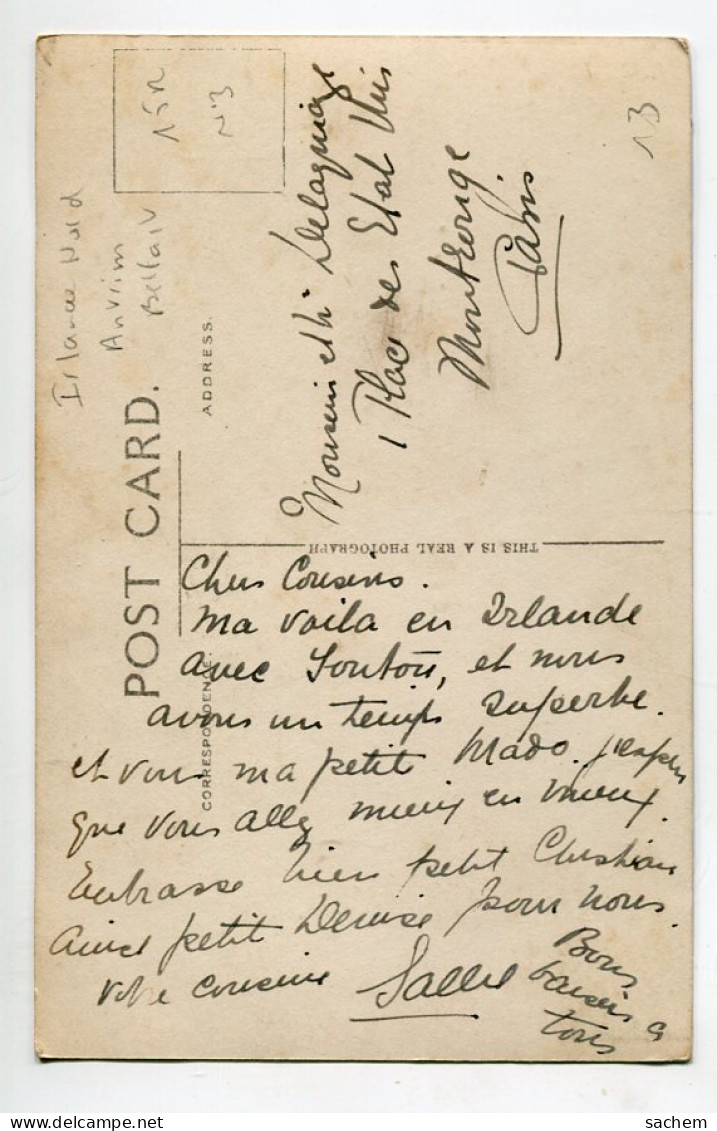 POST CARD.
CORRESPONDENCE.
ADDRESS.
THIS IS A REAL PHOTOGRAPH
15R
N°3
13
Irlande Nord
Antrim
Monsieur et
1 Place des Etat Unis
Montrouge
Paris
Chers Cousins.
Ma voila en Irlande
avec Tonton, et nous
avons un temps superbe.
et vous ma petit Mado. j'espere
que vous allez mieux en mieux.
Embrasse bien petit Christian
ainsi petit Denise pour nous.
votre cousine
Bons
baisers a
tous
sachem